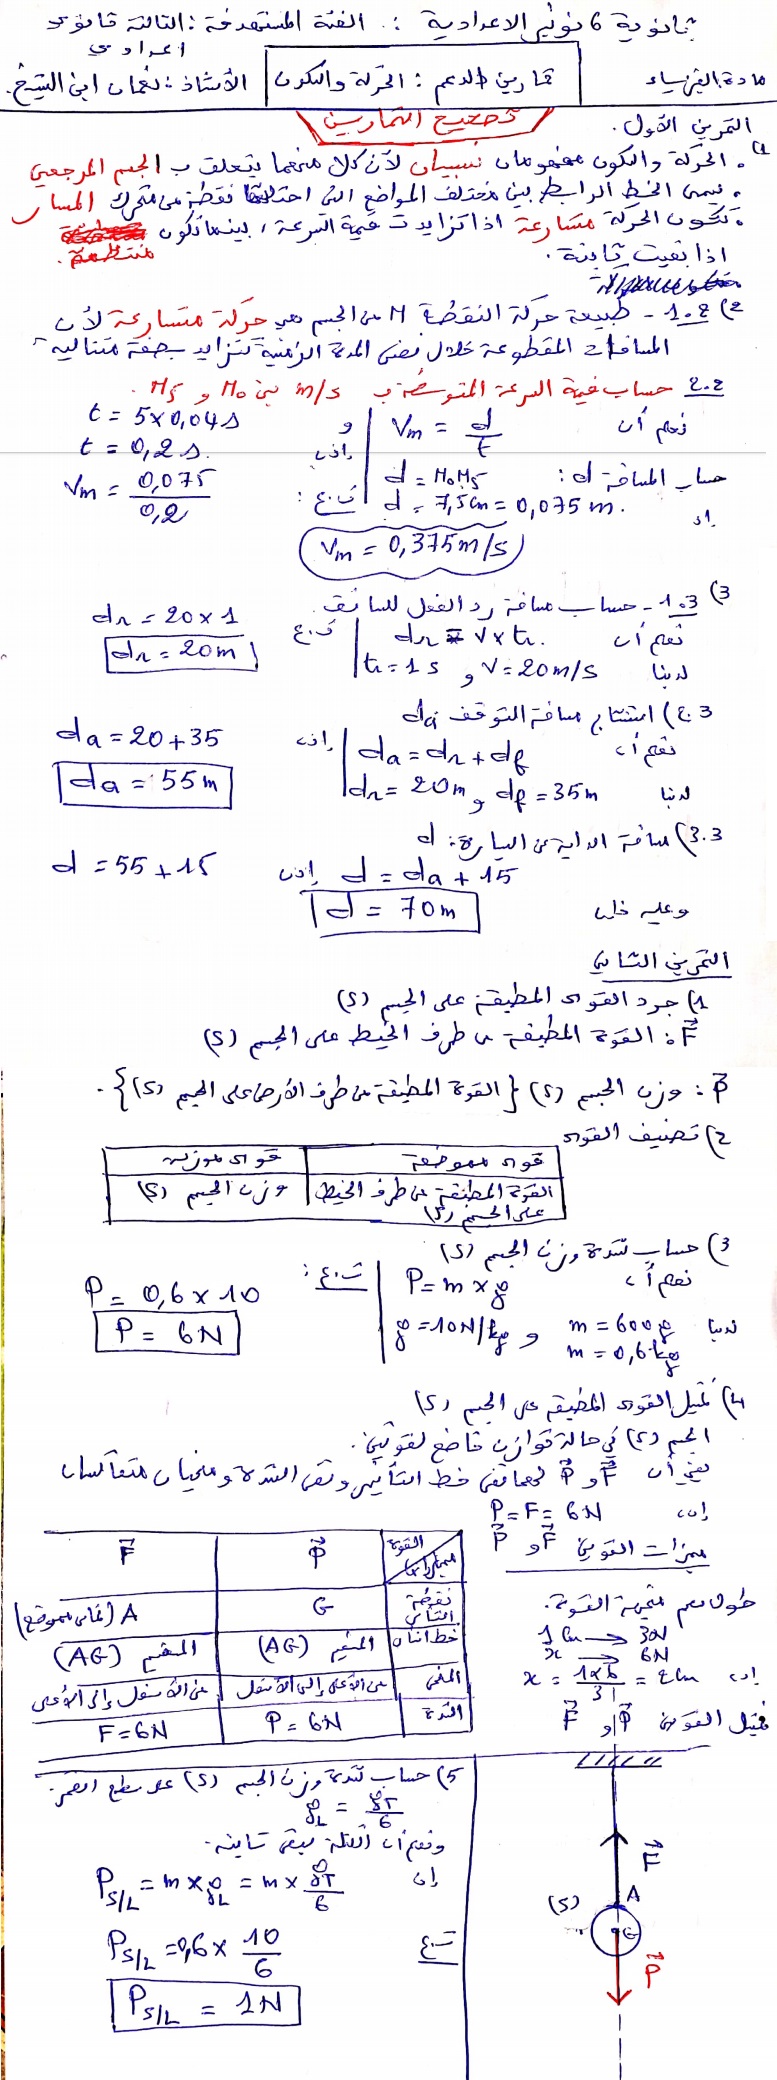 ثانوية 6 نونبر الاعدادية :. الفئة المستهدفة : الثالثة ثانوي اعدادي
مادة الفيزياء
تمارين الدعم : الحركة والسكون
الأستاذ : نعمان ابن الشيخ.
تصحيح التمارين
التمرين الأول.
1) . الحركة والسكون مفهومان نسبيان لأن كلا منهما يتعلق ب الجسم المرجعي
. يسمى الخط الرابط بين مختلف المواضع التي احتلتها نقطة من متحرك المسار
. تكون الحركة متسارعة اذا تزايدت قيمة السرعة ، بينما تكون منتظمة.
اذا بقيت ثابتة.
2) 1.2 - طبيعة حركة النقطة M من الجسم هي حركة متسارعة لأن
المسافات المقطوعة خلال نفس المدة الزمنية تتزايد بصفة متتالية
2.2 حساب قيمة السرعة المتوسطة ب m/s بين M₀ و M₅.
نعلم أن Vm = d/t و t = 5×0,04s
t = 0,2s.
حساب المسافة d: d = M₀M₅ إذن Vm = 0,075/0,2
d = 7,5cm = 0,075m. ت.ع:
Vm = 0,375m/s
3) 1.3 - حساب مسافة رد الفعل للسائق.
نعلم أن dr = V×tr. ت.ع dr = 20×1
لدينا V=20m/s و tr=1s dr = 20m
2.3) استنتاج مسافة التوقف da
نعلم أن da = dr + df إذن da = 20+35
لدينا dr = 20m و df = 35m da = 55m
3.3) مسافة الدابة عن السيارة: d
d = da + 15 إذن d = 55+15
وعليه فإن d = 70m
التمرين الثاني
1) جرد القوى المطبقة على الجسم (S)
F⃗ : القوة المطبقة من طرف الخيط على الجسم (S)
P⃗ : وزن الجسم (S) {القوة المطبقة من طرف الأرض على الجسم (S)}.
2) تصنيف القوى
قوى مموضعة | قوى موزعة
القوة المطبقة من طرف الخيط على الجسم (S) | وزن الجسم (S)
3) حساب شدة وزن الجسم (S)
نعلم أن P = m×g ت.ع: P = 0,6×10
لدينا m = 600g و g = 10N/kg P = 6N
m = 0,6kg
4) تمثيل القوى المطبقة على الجسم (S)
الجسم (S) في حالة توازن خاضع لقوتين.
يعني أن F⃗ و P⃗ لهما نفس خط التأثير ونفس الشدة ومنحيان متعاكسان
إذن P = F = 6N
مميزات القوتين F⃗ و P⃗
القوة مميزاتها | P⃗ | F⃗
نقطة التأثير | G | A (تماس مموقع)
خط التأثير | المستقيم (AG) | المستقيم (AG)
المنحى | من الأعلى إلى الأسفل | من الأسفل إلى الأعلى
الشدة | P = 6N | F = 6N
طول سهم متجهة القوة.
1cm → 3N
x → 6N
إذن x = 1×6/3 = 2cm
تمثيل القوتين P⃗ و F⃗
F⃗
A
(S)
G
P⃗
5) حساب شدة وزن الجسم (S) على سطح القمر.
gL = gT/6
ونعلم أن الكتلة تبقى ثابتة.
إذن PS/L = m×gL = m×gT/6
ت.ع PS/L = 0,6×10/6
PS/L = 1N